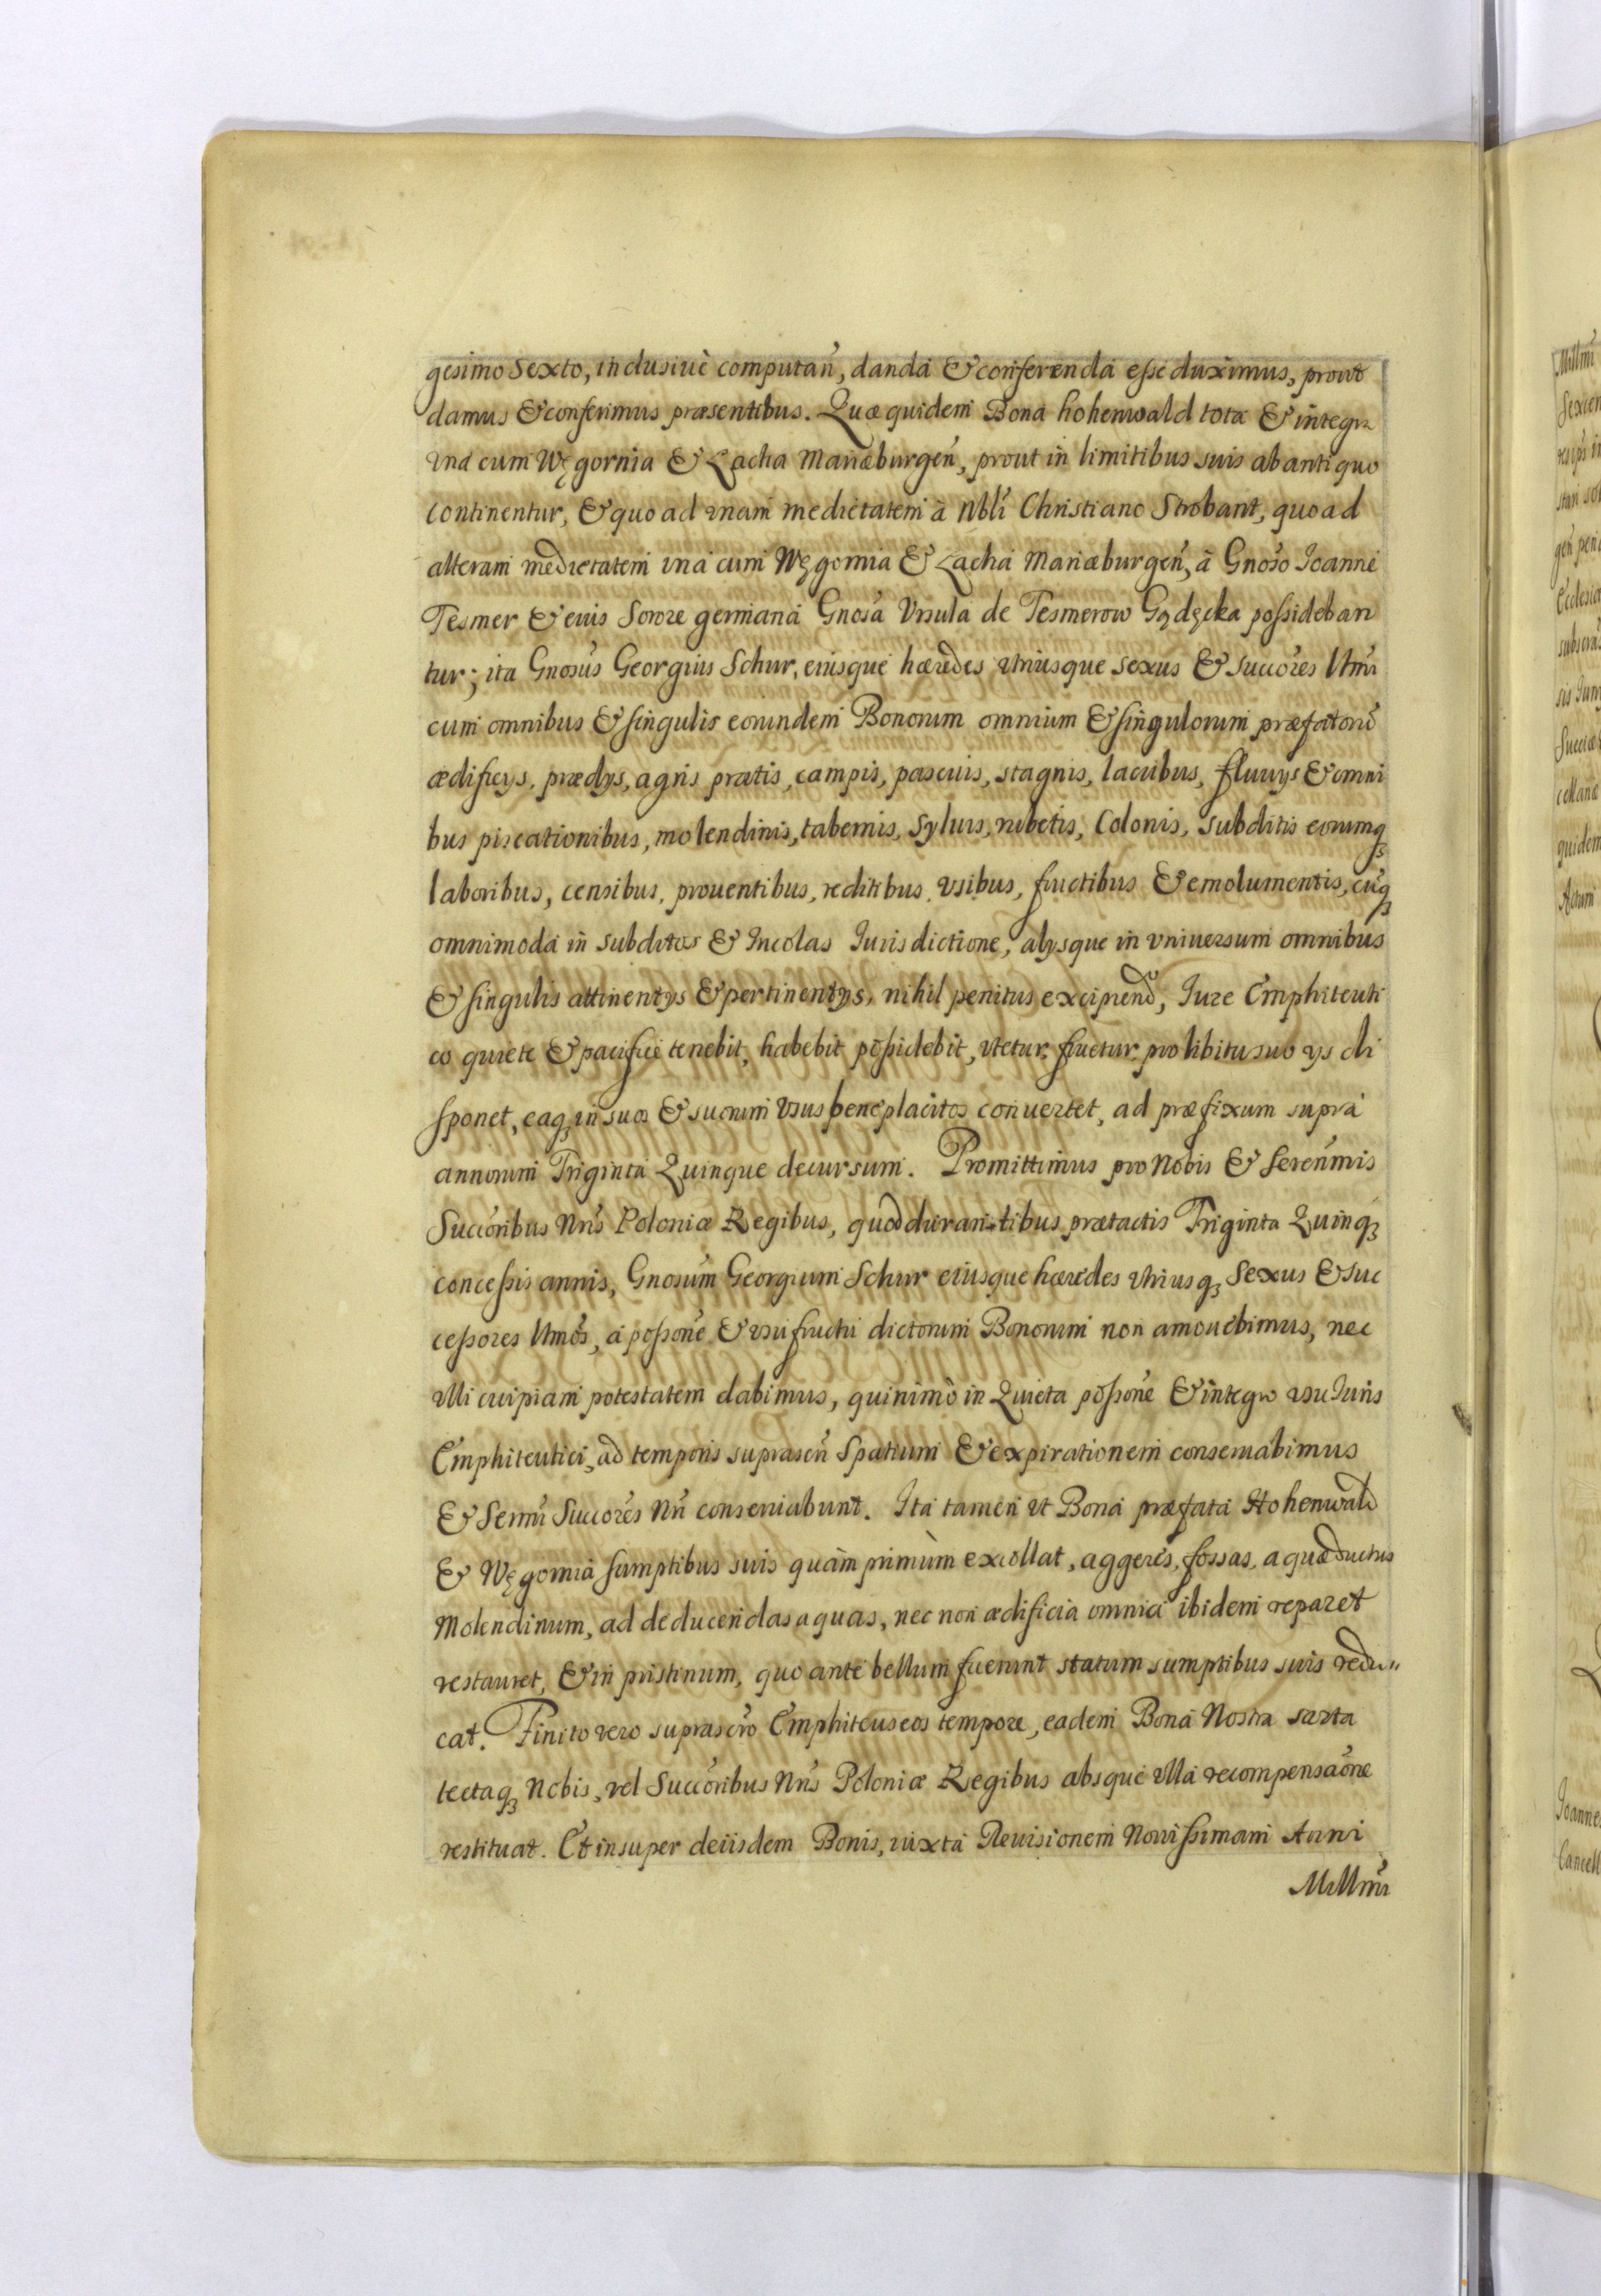 gesimo Sexto, inclusiuè computañ, danda & conferenda esse duximus, prout
damus & conferimus præsentibus. Quæ quidem Bona hohenwald tota & integra
vna cum Węgornia & Łacha Mariæburgeñ, prout in limitibus suis ab antiquo
continentur, & quo ad vnam medietatem à Nbli Christiano Strobant, quo ad
alteram medietatem vna cum Węgornia & Łacha Mariæburgeñ, à Gnoso Joanne
Tesmer & eius Sorore germana Gnosa Vrsula de Tesmerow Gądęcka possideban
tur; ita Gnosus Georgius Schur, eiusque hæredes vtriusque sexus & succores lttmi
cum omnibus & singulis eorundem Bonorum omnium & singulorum præfatorũ
ædificys, prædys, agris pratis, campis, pascuis, stagnis, lacubus, fluuys & omni
bus piscationibus, molendinis, tabernis, syluis, rubetis, Colonis, subditis eorumq3
laboribus, censibus, prouentibus, reditibus, vsibus, fructibus & emolumentis, cuq3
omnimoda in subditos & Incolas Jurisdictione, alysque in vniuersum omnibus
& singulis attinentys & pertinentys, nihil penitus excipiend, Jure Emphiteuti
co quiete & pacifice tenebit, habebit possidebit, vtetur, fruetur, pro libitu suo ys di
sponet, eaq3 in suos & suorum vsus beneplacitos conuertet, ad præfixum supra
annorum Triginta Quinque decursum. Promittimus pro Nobis & Sereñmis
Succoribus Nris Poloniæ Regibus, quod durantibus prætactis Triginta Quinq3
concessis annis, Gnosum Georgium Schur eiusque hæredes vtriusq3 sexus & suc
cessores lttmos, à possone & vsufructu dictorum Bonorum non amouebimus, nec
vlli cuipiam potestatem dabimus, quinimò in Quieta possone & integro vsu Juris
Emphiteutici, ad temporis suprascñ spatium & expirationem conseruabimus
& Sermi Succores Nri conseruabunt. Ita tamen vt Bona præfata Hohenwald
& Węgornia sumptibus suis quàm primùm excollat, aggeres, fossas, aquæductus
Molendinum, ad deducendas aquas, nec non ædificia omnia ibidem reparet
restauret, & in pristinum, quo ante bellum fuerunt statum sumptibus suis redu"
cat. Finito vero suprascro Emphiteuseos tempore, eadem Bona Nostra sarta
tectaq3 Nobis, vel Succoribus Nris Poloniæ Regibus absque vlla recompensaone
restituat. Et insuper de iisdem Bonis, iuxta Reuisionem Nouissimam Anni
Millmi